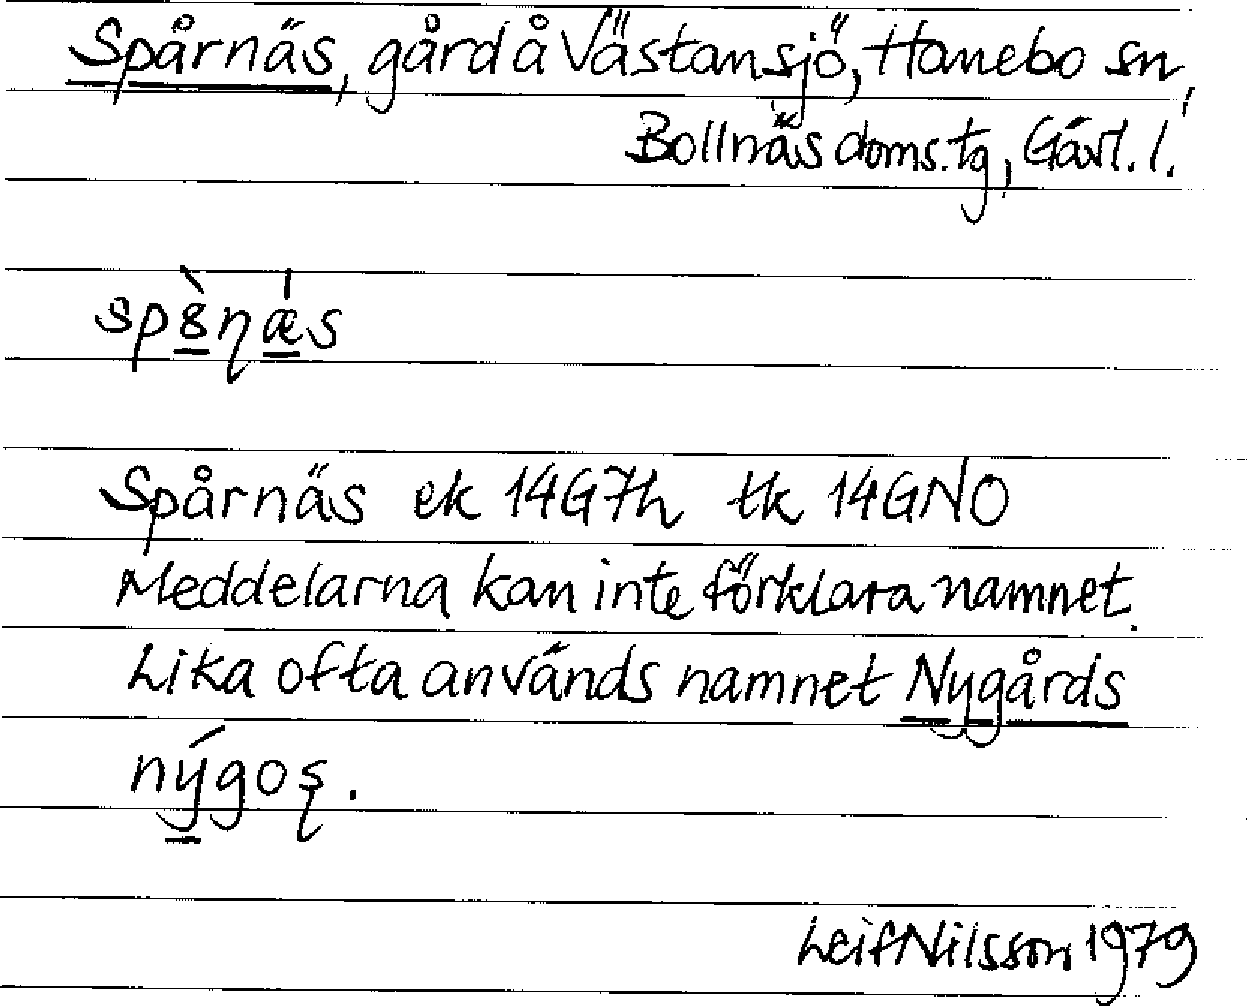 Spårnäs, gård å Västansjö, Hanebo sn,
Bollnäs doms.tg, Gävl. l.
Spårnäs ek 14G7h tk 14GNO
Meddelarna kan inte förklara namnet.
Lika ofta används namnet Nygårds
nýgoş.
Leif Nilsson 1979